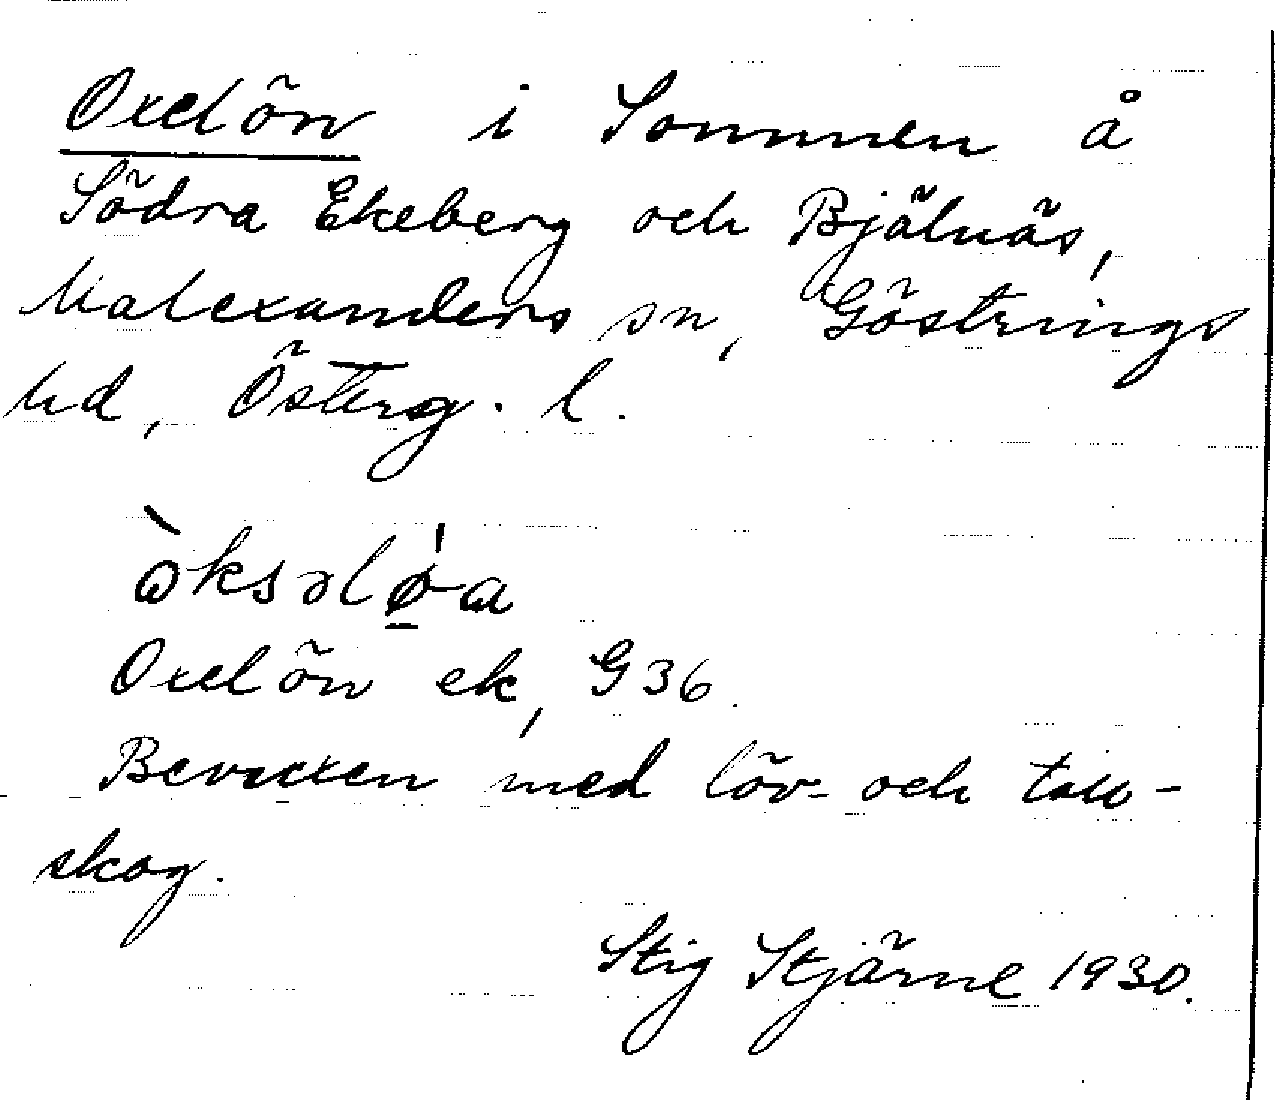 Oxelön i Sommen å
Södra Ekeberg och Bjälnäs,
Malexanders sn, Göstrings
hd, Österg. l.
ὼksəlø̱̍a
Oxelön ek, G36.
Bevuxen med löv- och tall-
skog.
Stig Stjärne 1930.